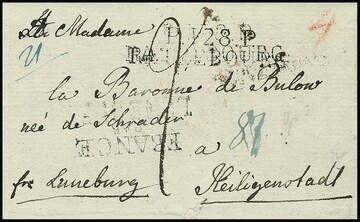 A Madame
P.128.P.
RATZEBOURG
la Baronne de Bulow
née de Schrader
FRANCE
a
fro Luneburg
Heiligenstadt